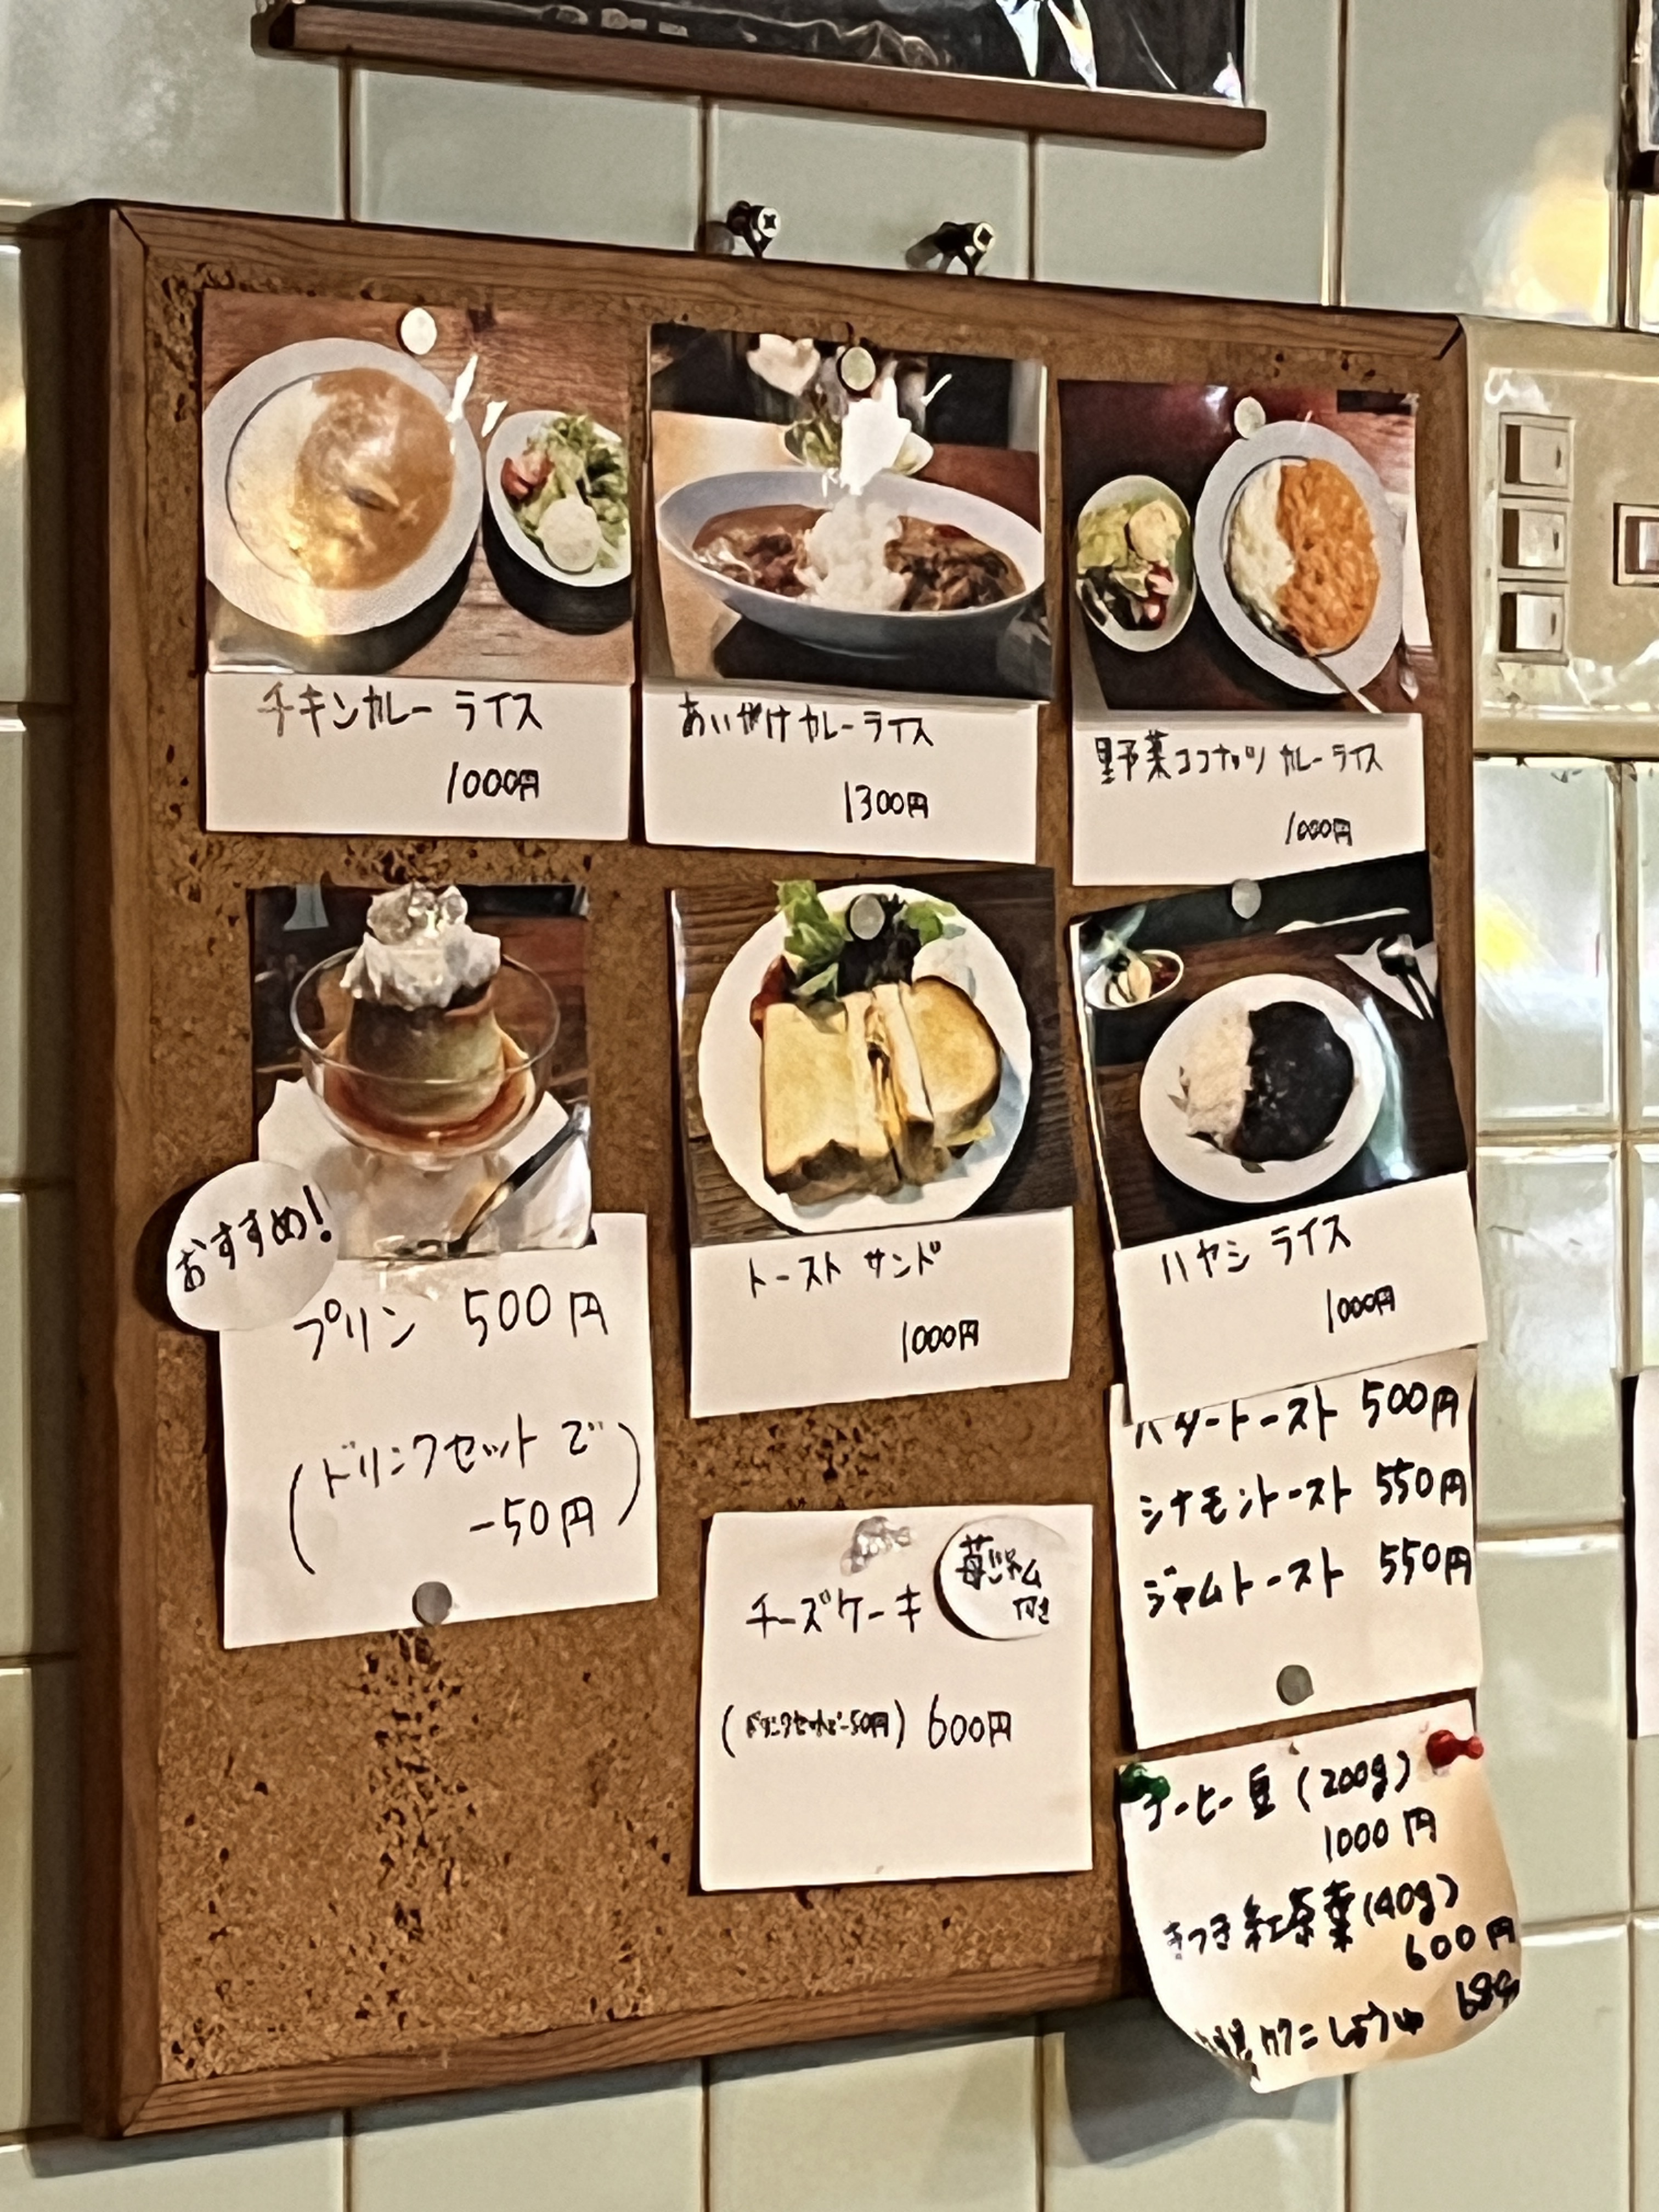 チキンカレーライス
1000円
あいがけカレーライス
1300円
野菜ココナッツカレーライス
1000円
おすすめ!
プリン 500円
(ドリンクセットで
-50円)
トーストサンド
1000円
ハヤシライス
1000円
バタートースト 500円
シナモントースト 550円
ジャムトースト 550円
チーズケーキ
苺ジャム
付き
(ドリンクセットで-50円) 600円
コーヒー豆(200g)
1000円
きつき紅茶葉(40g)
600円
しょうゆ